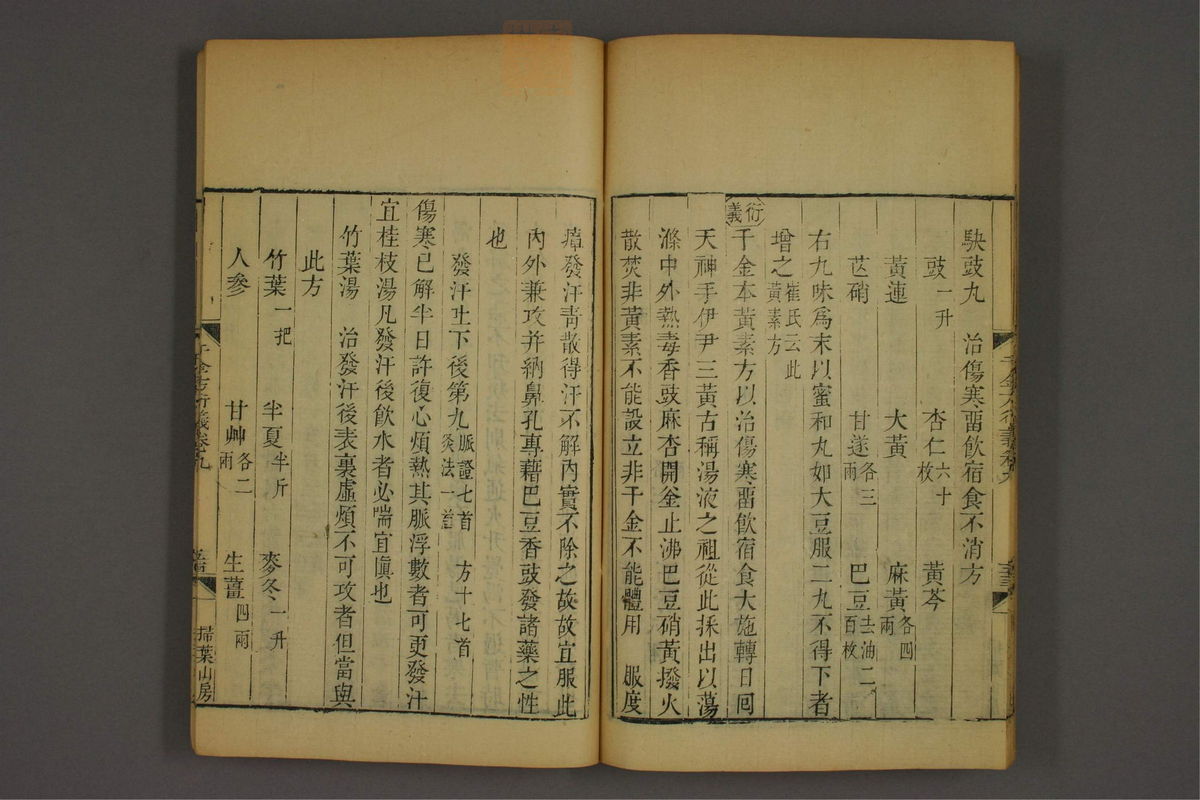 千金方衍義卷九
駃豉丸 治傷寒畱飲宿食不消方
豉一升 杏仁六十枚 黃芩
黃連 大黃 麻黃各四兩
芒硝 甘遂各三兩 巴豆去油二百枚
右九味爲末以蜜和丸如大豆服二丸不得下者
增之崔氏云此黃素方
衍義
千金本黃素方以治傷寒畱飲宿食大施轉日回
天神手伊尹三黃古稱湯液之祖從此採出以蕩
滌中外熱毒香豉麻杏開釜止沸巴豆硝黃撥火
散焚非黃素不能設立非千金不能體用 服度
瘴發汗靑散得汗不解內實不除之故故宜服此
內外兼攻并納鼻孔專藉巴豆香豉發諸藥之性
也
發汗吐下後第九脈證七首 方十七首 灸法一首
傷寒已解半日許復心煩熱其脈浮數者可更發汗
宜桂枝湯凡發汗後飲水者必喘宜愼也
竹葉湯 治發汗後表裏虛煩不可攻者但當與
此方
竹葉一把 半夏半斤 麥冬一升
人參 甘艸各二兩 生薑四兩
千金方衍義卷九
掃葉山房